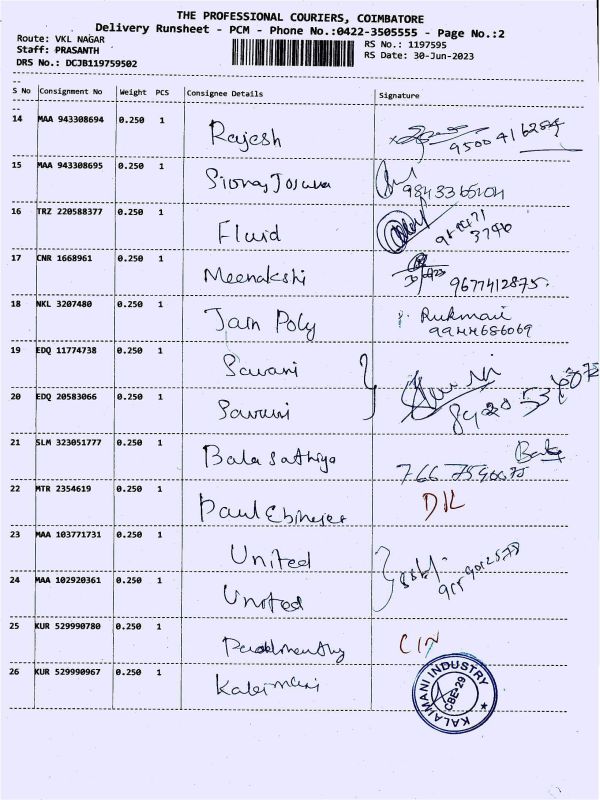 THE PROFESSIONAL COURIERS, COIMBATORE
Delivery Runsheet - PCM - Phone No.:0422-3505555 - Page No.:2
Route: VKL NAGAR
Staff: PRASANTH
DRS No.: DCJB119759502
RS No.: 1197595
RS Date: 30-Jun-2023
S No Consignment No Weight PCS Consignee Details Signature
14 MAA 943308694 0.250 1 Rajesh 9500416284
15 MAA 943308695 0.250 1
16 TRZ 220588377 0.250 1 Fluid
17 CNR 1668961 0.250 1 Meenakshi 9677412875.
18 NKL 3207480 0.250 1 Jain Poly Rukmani
9944686069
19 EDQ 11774738 0.250 1 Sawani
20 EDQ 20583066 0.250 1 Sawani
21 SLM 323051777 0.250 1 Bala Sathiya
22 MTR 2354619 0.250 1 Paul Ebinejer D/L
23 MAA 103771731 0.250 1 United
24 MAA 102920361 0.250 1 United
25 KUR 529990780 0.250 1
26 KUR 529990967 0.250 1 Kalaimani
KALAIMANI INDUSTRY
CBE-29